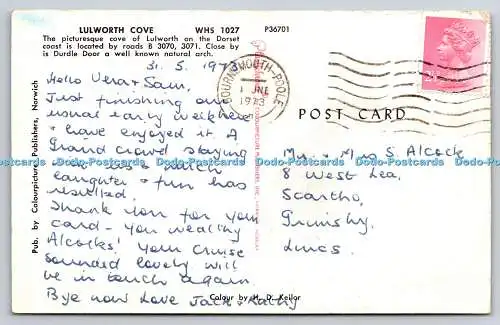 LULWORTH COVE WHS 1027
The picturesque cove of Lulworth on the Dorset
coast is located by roads B 3070, 3071. Close by
is Durdle Door a well known natural arch.
P36701
31. 5. 1973
Hello Vera & Sam,
Just finishing our
usual early week here
& have enjoyed it. A
Grand crowd staying
much
laughter & fun has
resulted.
Thank you for your
card - you wealthy
Alcocks! Your cruise
sounded lovely will
be in touch again.
Bye now Love Jack & Kathy
Pub. by Colourpicture Publishers, Norwich
Colour by H. D. Keilor
BOURNEMOUTH-POOLE
1 JNE
1973
POST CARD
Mr. & Mrs S Alcock
8 West Lea,
Scartho,
Grimsby,
Lincs.
Dodo-Postcards Dodo-Postcards Dodo-Postcards Dodo-Postcards